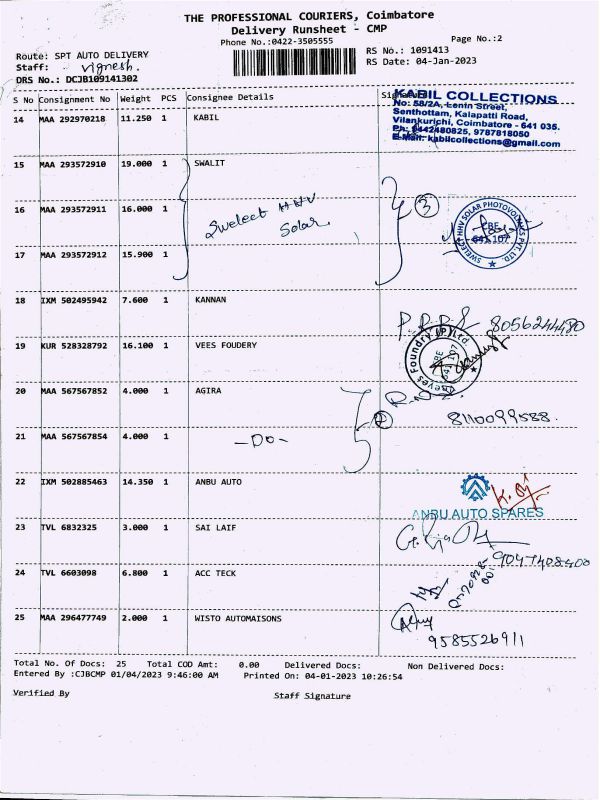 THE PROFESSIONAL COURIERS, Coimbatore
Delivery Runsheet - CMP
Phone No.:0422-3505555
Page No.:2
Route: SPT AUTO DELIVERY
RS No.: 1091413
Staff: vignesh.
RS Date: 04-Jan-2023
DRS No.: DCJB109141302
S No Consignment No Weight PCS Consignee Details
KABIL COLLECTIONS
No: 58/2A, Lenin Street,
Senthottam, Kalapatti Road,
Vilankurichi, Coimbatore - 641 035.
Ph: 9442480825, 9787818050
E-Mail: kabilcollections@gmail.com
14 MAA 292970218 11.250 1 KABIL
15 MAA 293572910 19.000 1 SWALIT
16 MAA 293572911 16.000 1
Swelect HHV
Solar.
3
SWELECT HHV SOLAR PHOTOVOLTAICS PVT. LTD.
CBE
641 107
17 MAA 293572912 15.900 1
18 IXM 502495942 7.600 1 KANNAN
8056244480
19 KUR 528328792 16.100 1 VEES FOUDERY
Veeyes Foundry (P) Ltd
CBE
641 107
20 MAA 567567852 4.000 1 AGIRA
2
8110099588.
21 MAA 567567854 4.000 1
-DO-
22 IXM 502885463 14.350 1 ANBU AUTO
ANBU AUTO SPARES
23 TVL 6832325 3.000 1 SAI LAIF
9047408400
24 TVL 6603098 6.800 1 ACC TECK
25 MAA 296477749 2.000 1 WISTO AUTOMAISONS
9585526911
Total No. Of Docs: 25 Total COD Amt: 0.00 Delivered Docs: Non Delivered Docs:
Entered By :CJBCMP 01/04/2023 9:46:00 AM Printed On: 04-01-2023 10:26:54
Verified By
Staff Signature